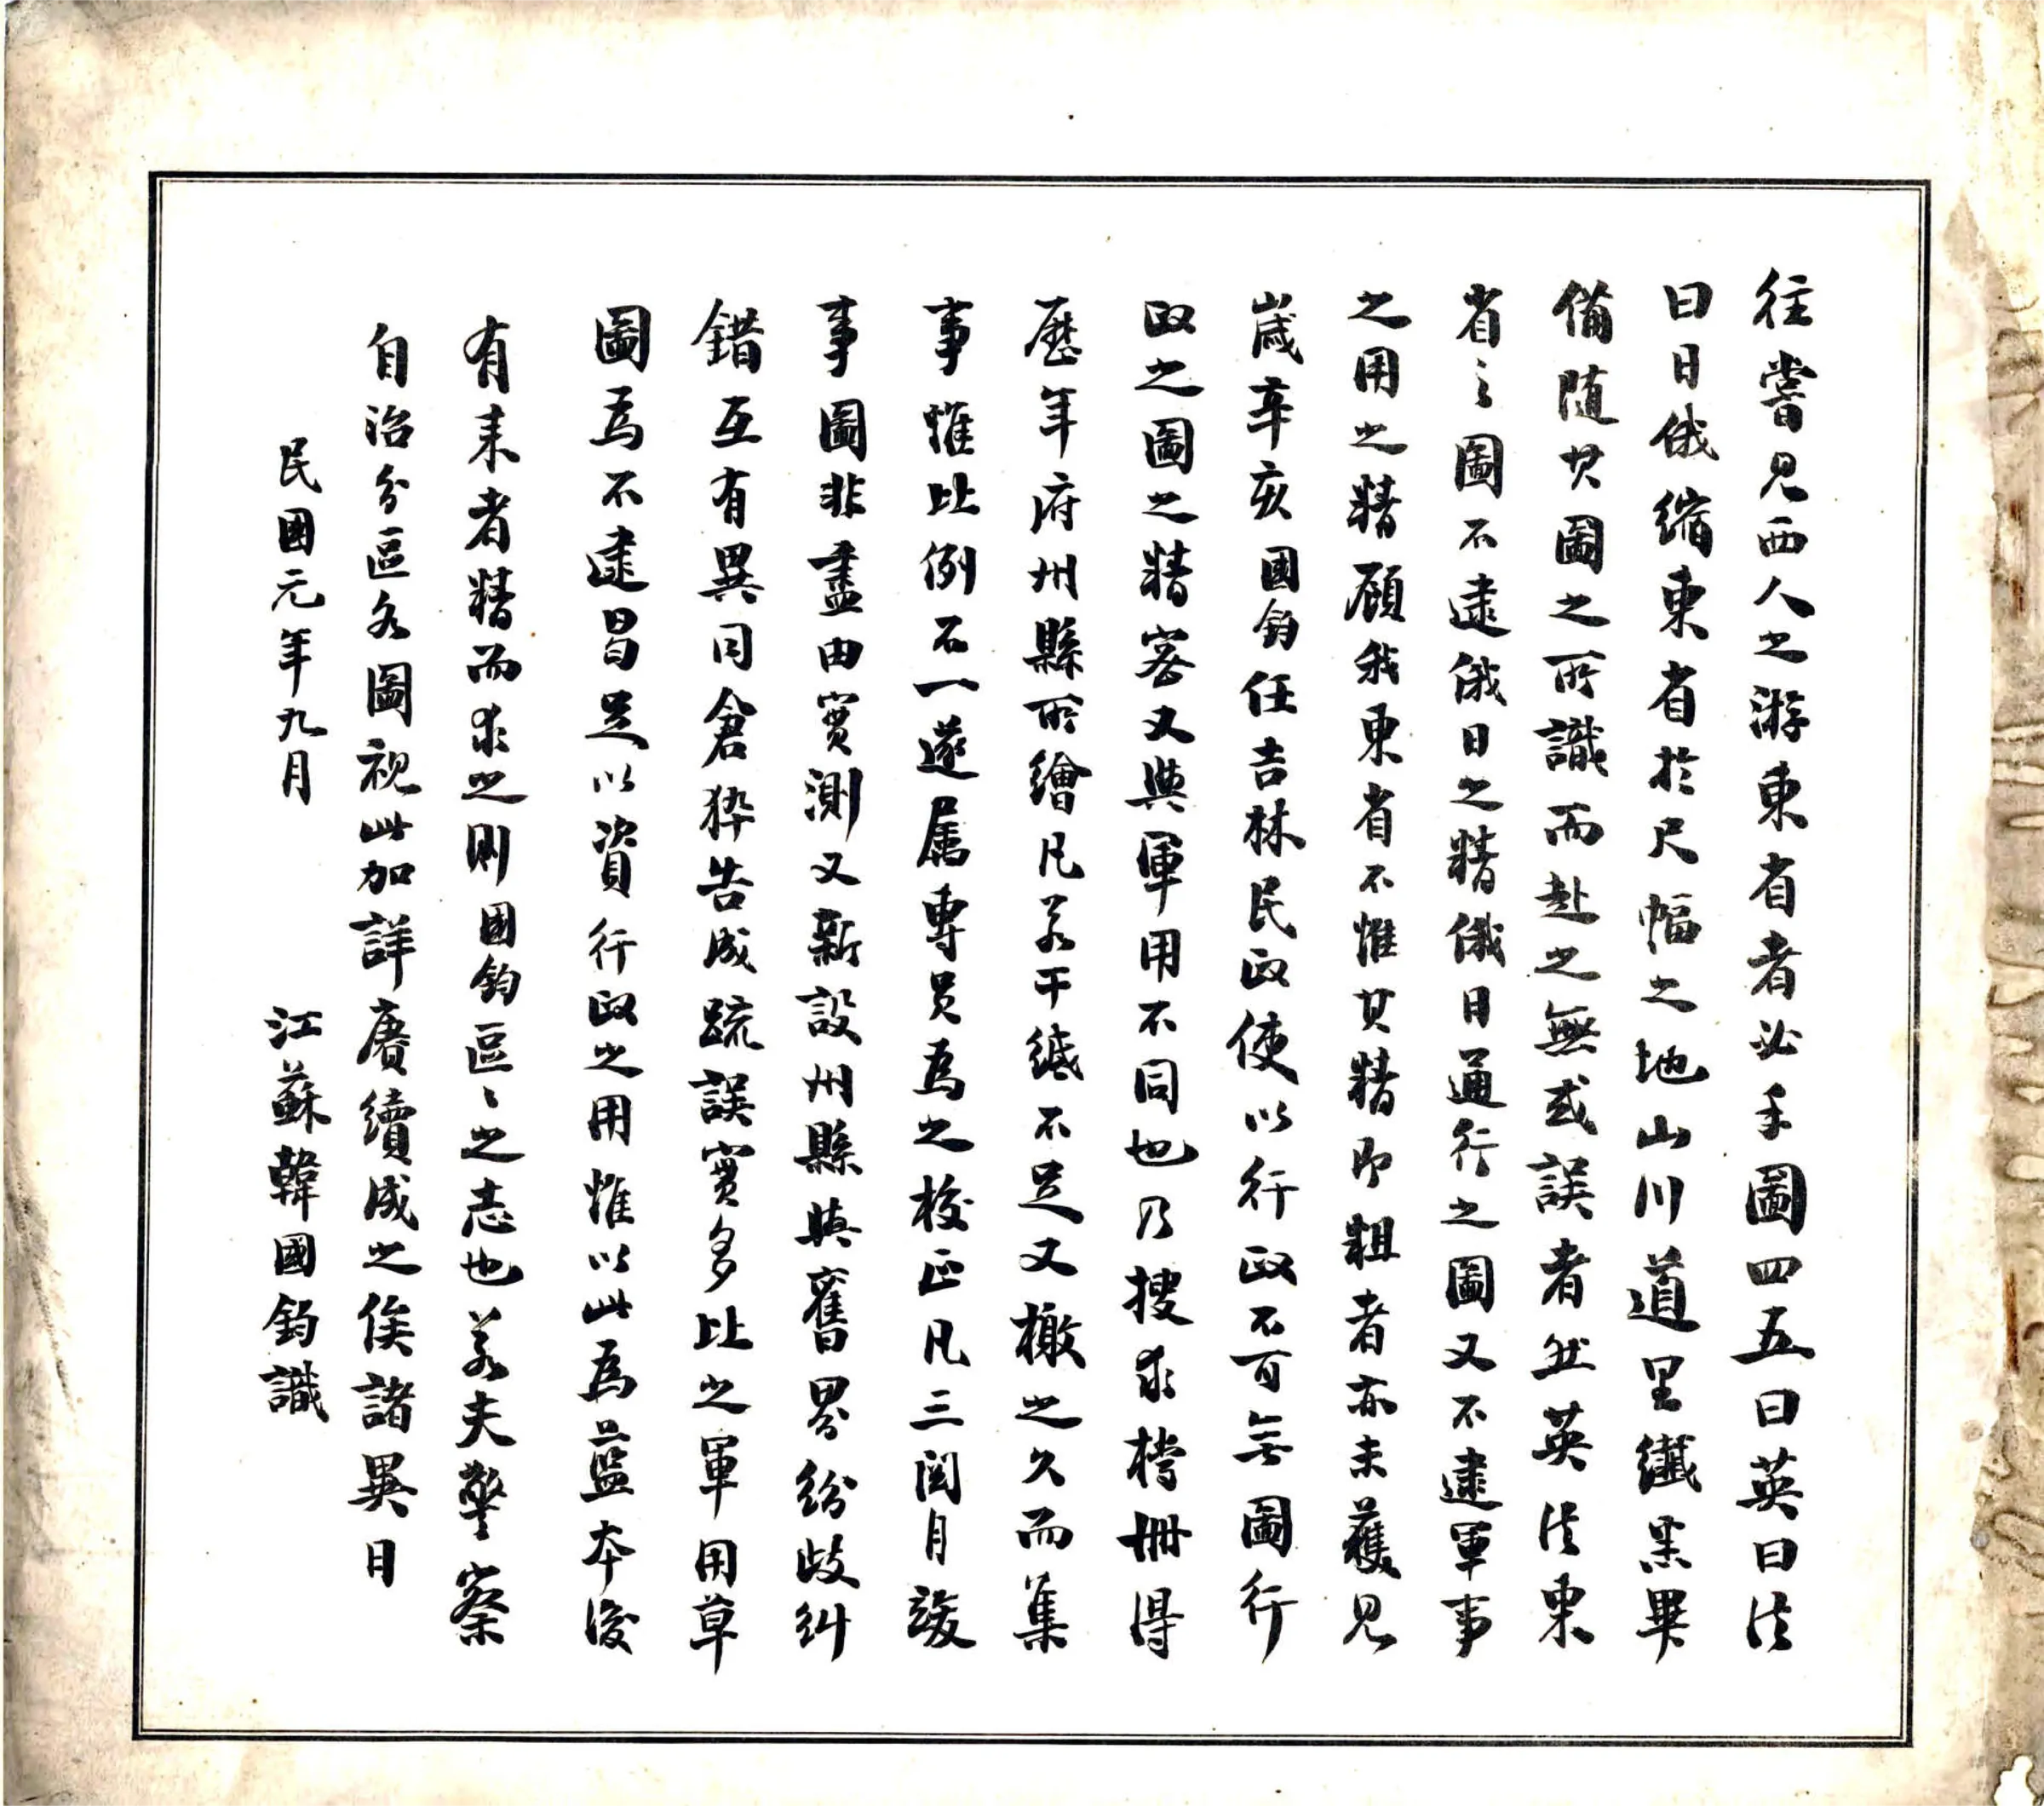 往嘗見西人之游東省者必手圖四五曰英曰法
曰日俄縮東省於尺幅之地山川道里纖黑畢
備隨其圖之所識而赴之無或誤者然英法東
省之圖不逮俄日之精俄日通行之圖又不逮軍事
之用之精顧我東省不惟其精即粗者亦未獲見
歲辛亥國鈞任吉林民政使以行政不可無圖行
政之圖之精審又與軍用不同也乃搜求檔冊得
歷年府州縣所繪凡若干紙不足又檄之久而集
事惟比例不一遂屬專員為之校正凡三閱月竣
事圖非盡由實測又新設州縣與舊界紛歧糾
錯互有異同倉猝告成疏誤實多比之軍用草
圖為不逮曷足以資行政之用惟以此為藍本後
有来者精而求之則國鈞區々之志也若夫警察
自治分區各圖視此加詳賡續成之俟諸異日
民國元年九月 江蘇韓國鈞識